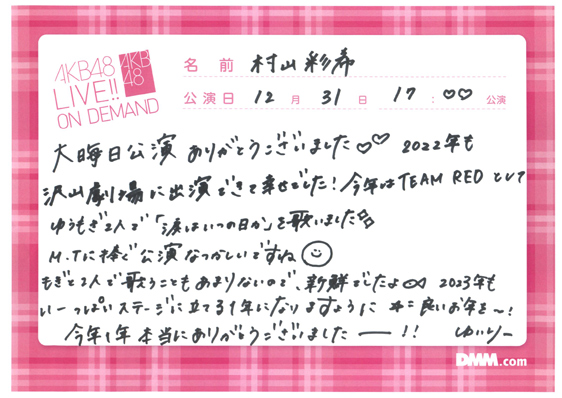 AKB48
LIVE!!
ON DEMAND
AKB
48
名前 村山彩希
公演日 12月 31日 17:♡♡ 公演
大晦日公演 ありがとうございました♡♡ 2022年も
沢山劇場に出演できて幸せでした!今年はTEAM REDとして
ゆうもぎ2人で「涙はいつの日か」を歌いました
M.Tに捧ぐ公演なつかしいですね☺
もぎと2人で歌うこともあまりないので、新鮮でしたよ∞ 2023年も
いーっぱいステージに立てる1年になりますように 良いお年を〜!
今年1年本当にありがとうございましたー!! ゆいりー
DMM.com